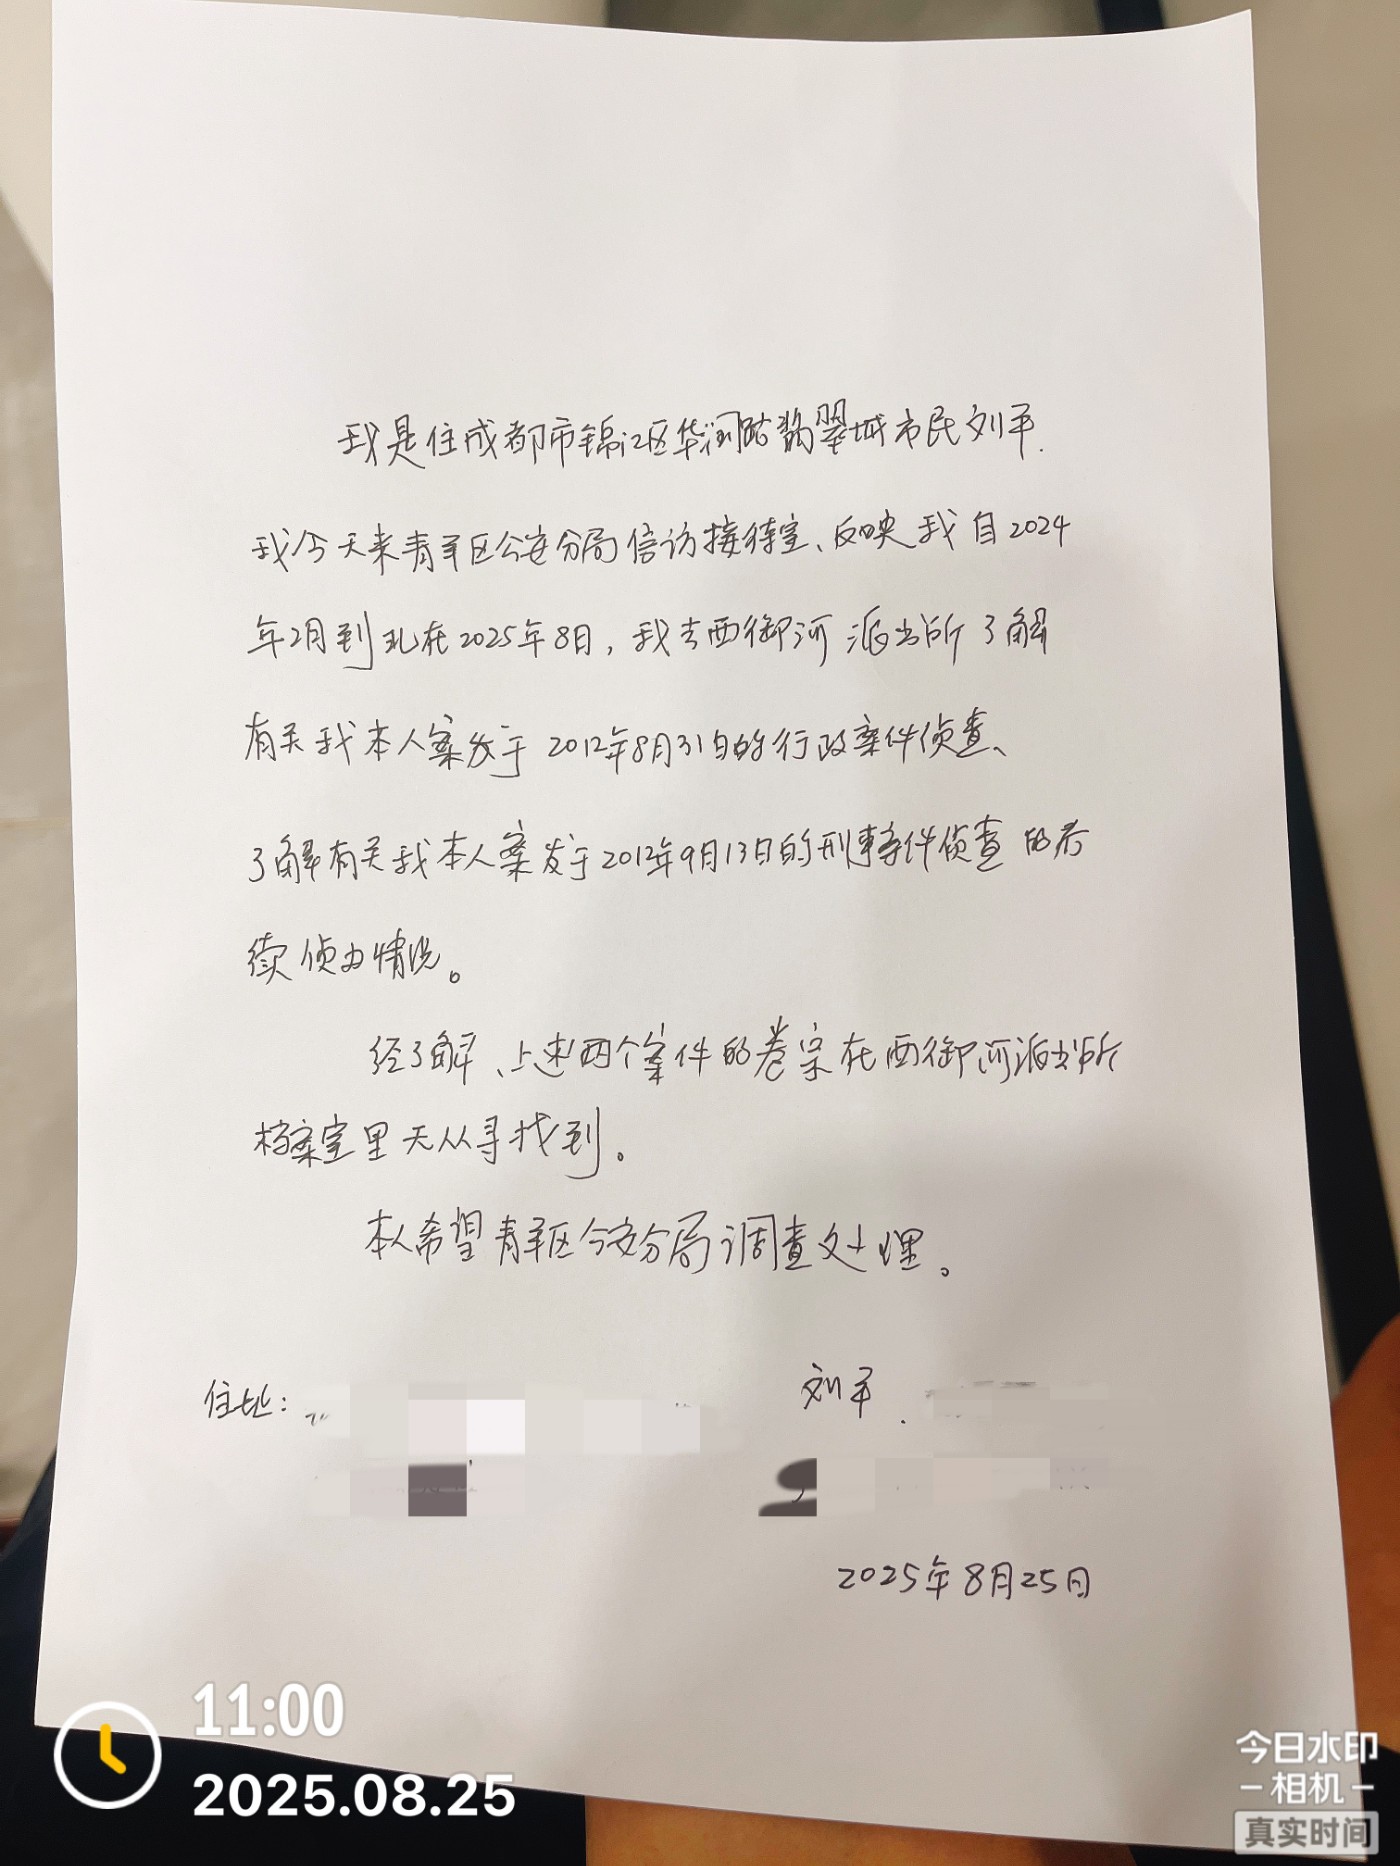 我是住成都市锦江区华润路翡翠城市民刘平.
我今天来青羊区公安分局信访接待室、反映我自2024
年2月到现在2025年8日,我去西御河派出所了解
有关我本人案发于2012年8月31日的行政案件侦查、
了解有关我本人案发于2012年9月13日的刑事案件侦查的后
续侦办情况。
经了解、上述两个案件的卷宗在西御河派出所
档案室里无从寻找到。
本人希望青羊区公安分局调查处理。
住址: 刘平.
2025年8月25日
11:00
2025.08.25
今日水印
相机
真实时间